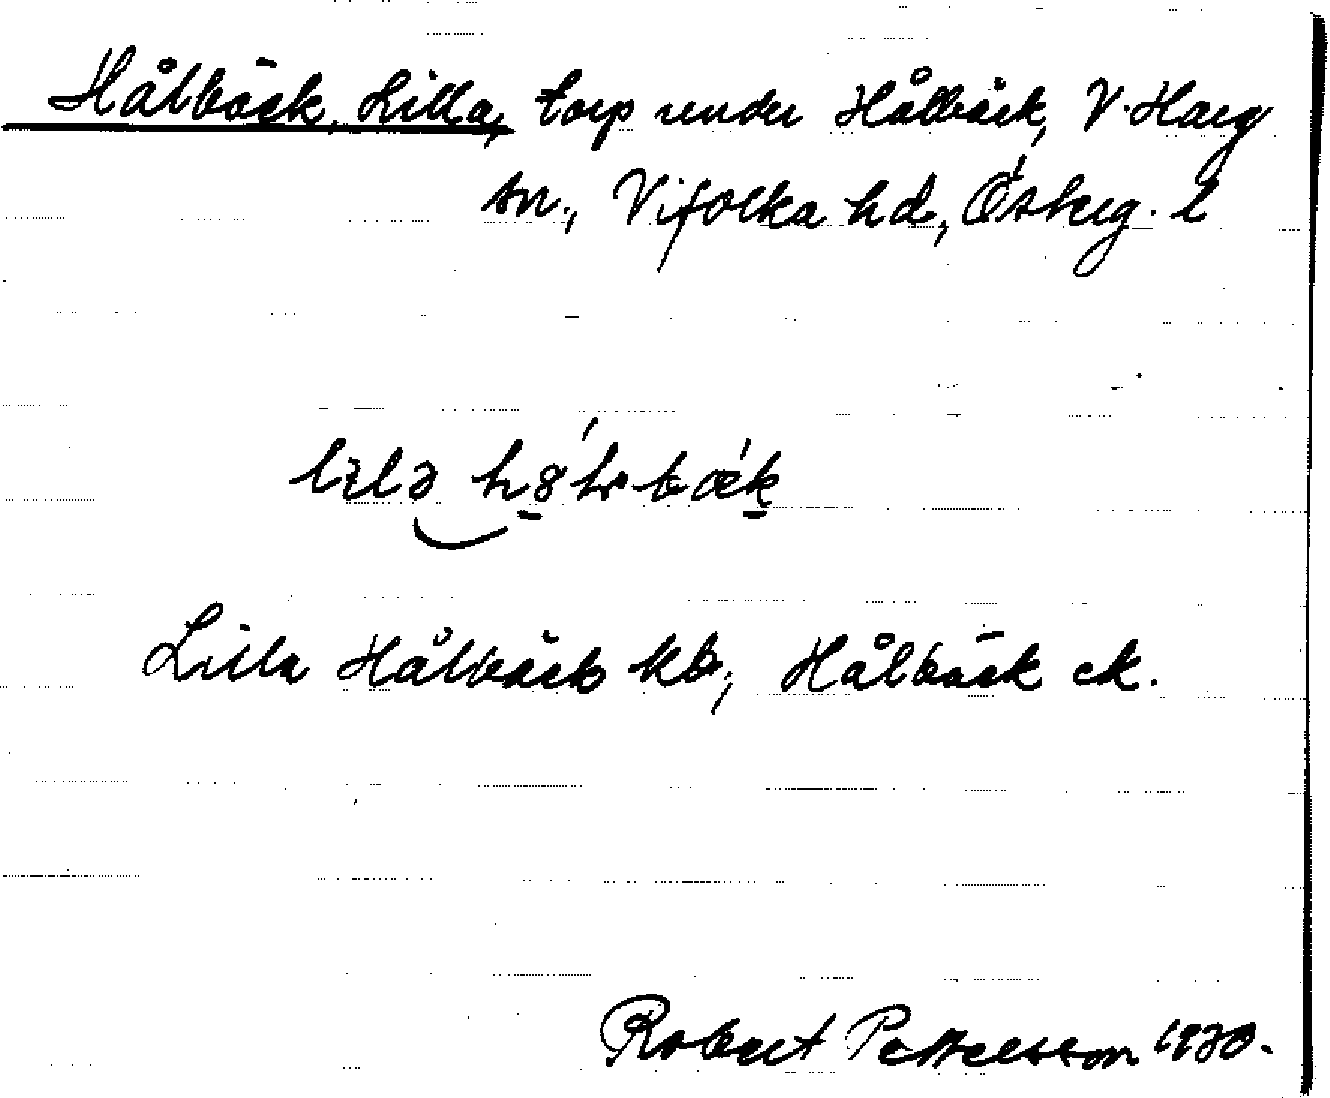 Hålbäck, Lilla, torp under Hålbäck, V. Harg
sn., Vifolka hd, Österg. l
Lilla Hålbäck kb, Hålbäck ek.
Robert Pettersson 1930.